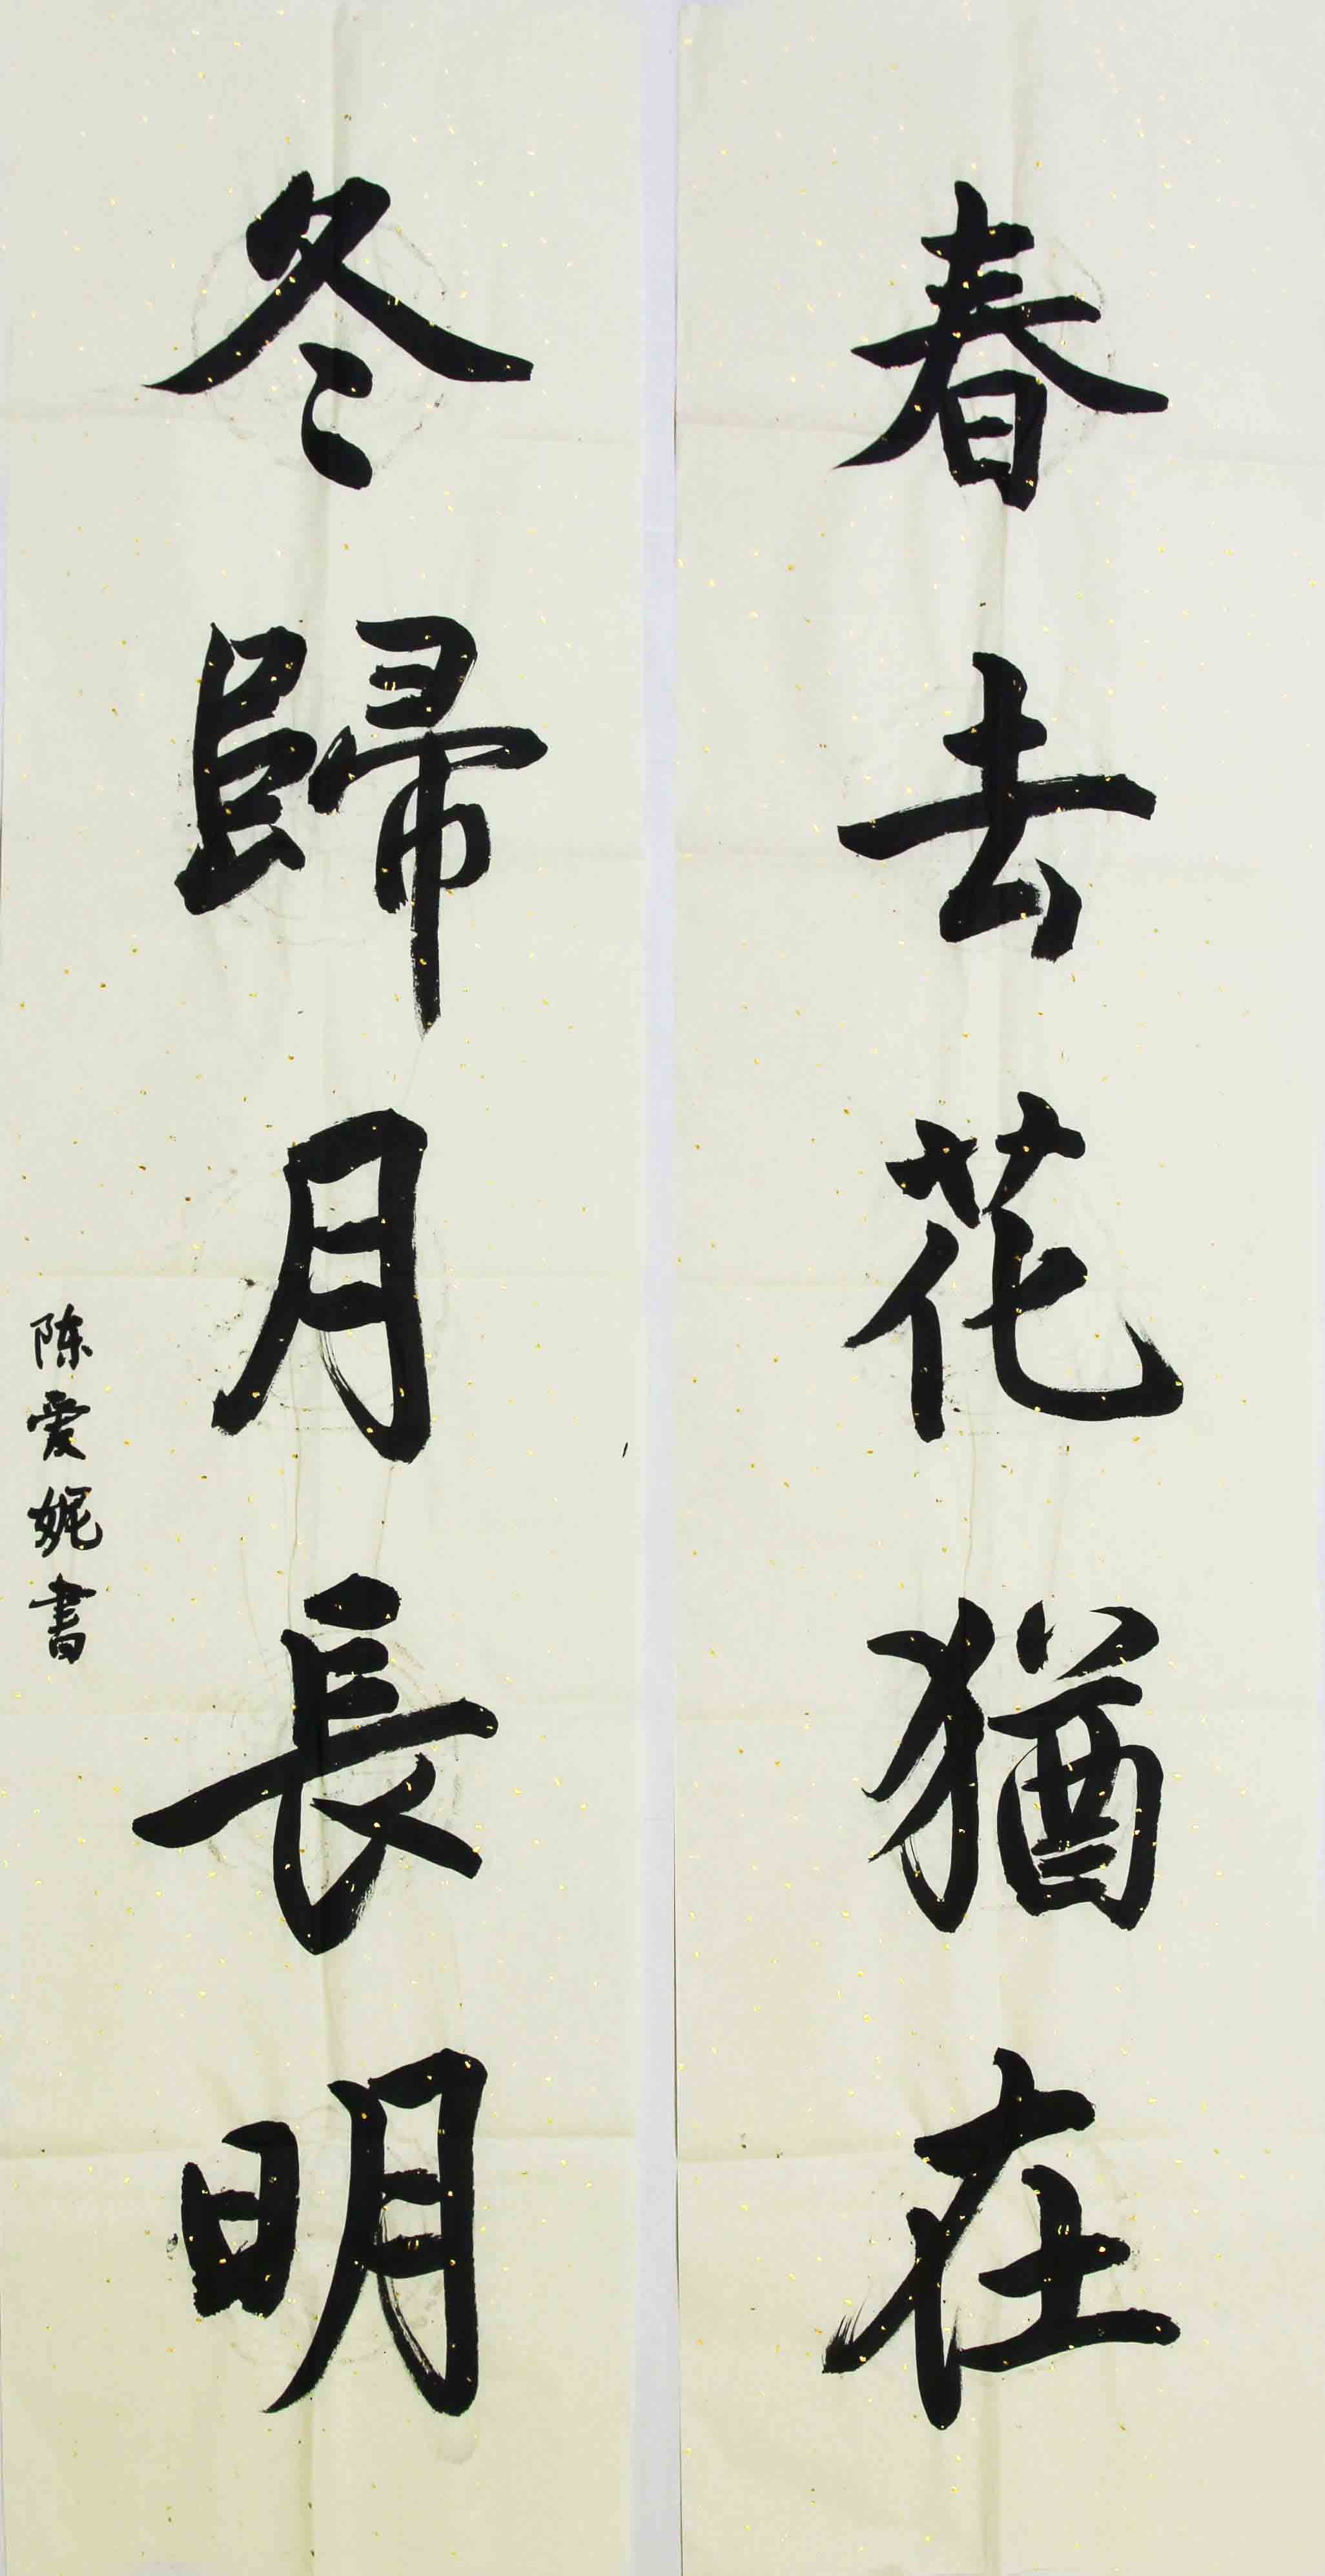 春去花猶在
冬歸月長明
陈爱妮書